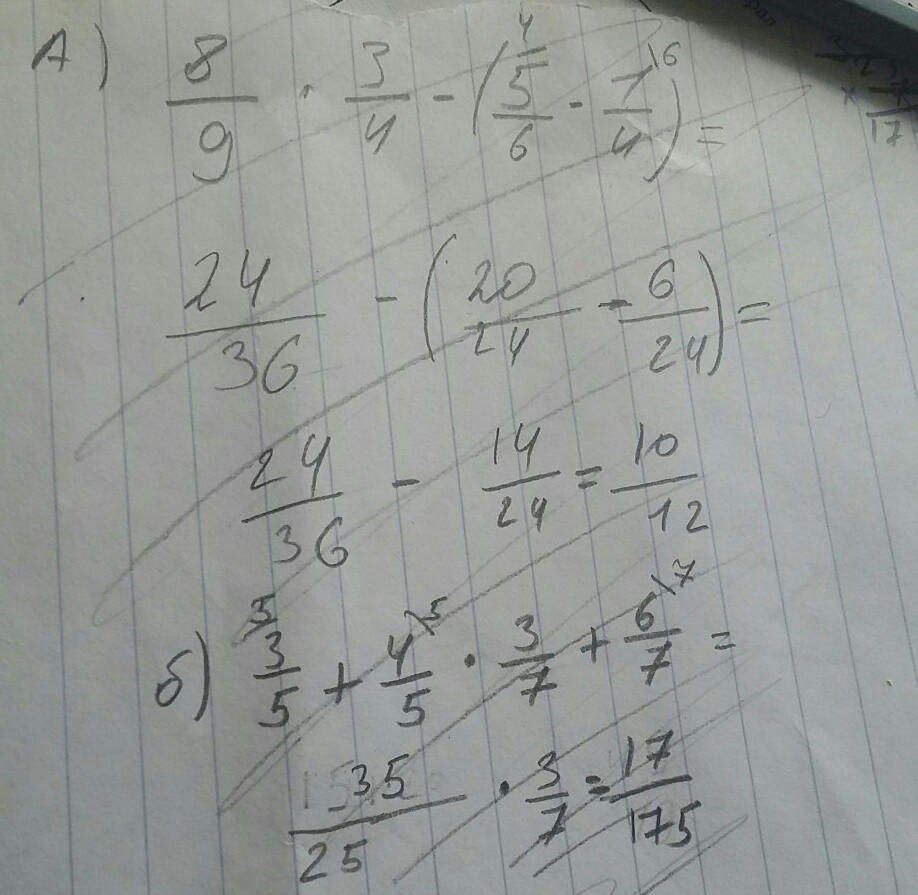 А) 8/9 · 3/4 - (5/6 \4 - 1/4 \6) =
24/36 - (20/24 - 6/24) =
24/36 - 14/24 = 10/12
б) 3/5 \5 + 4/5 \5 · 3/7 + 6/7 \7 =
35/25 · 3/7 = 17/175